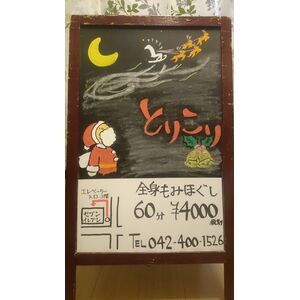 とりこり
全身もみほぐし
60分 ¥4000
税別
TEL 042-400-1526
エレベーター
入口
セブン
イレブン